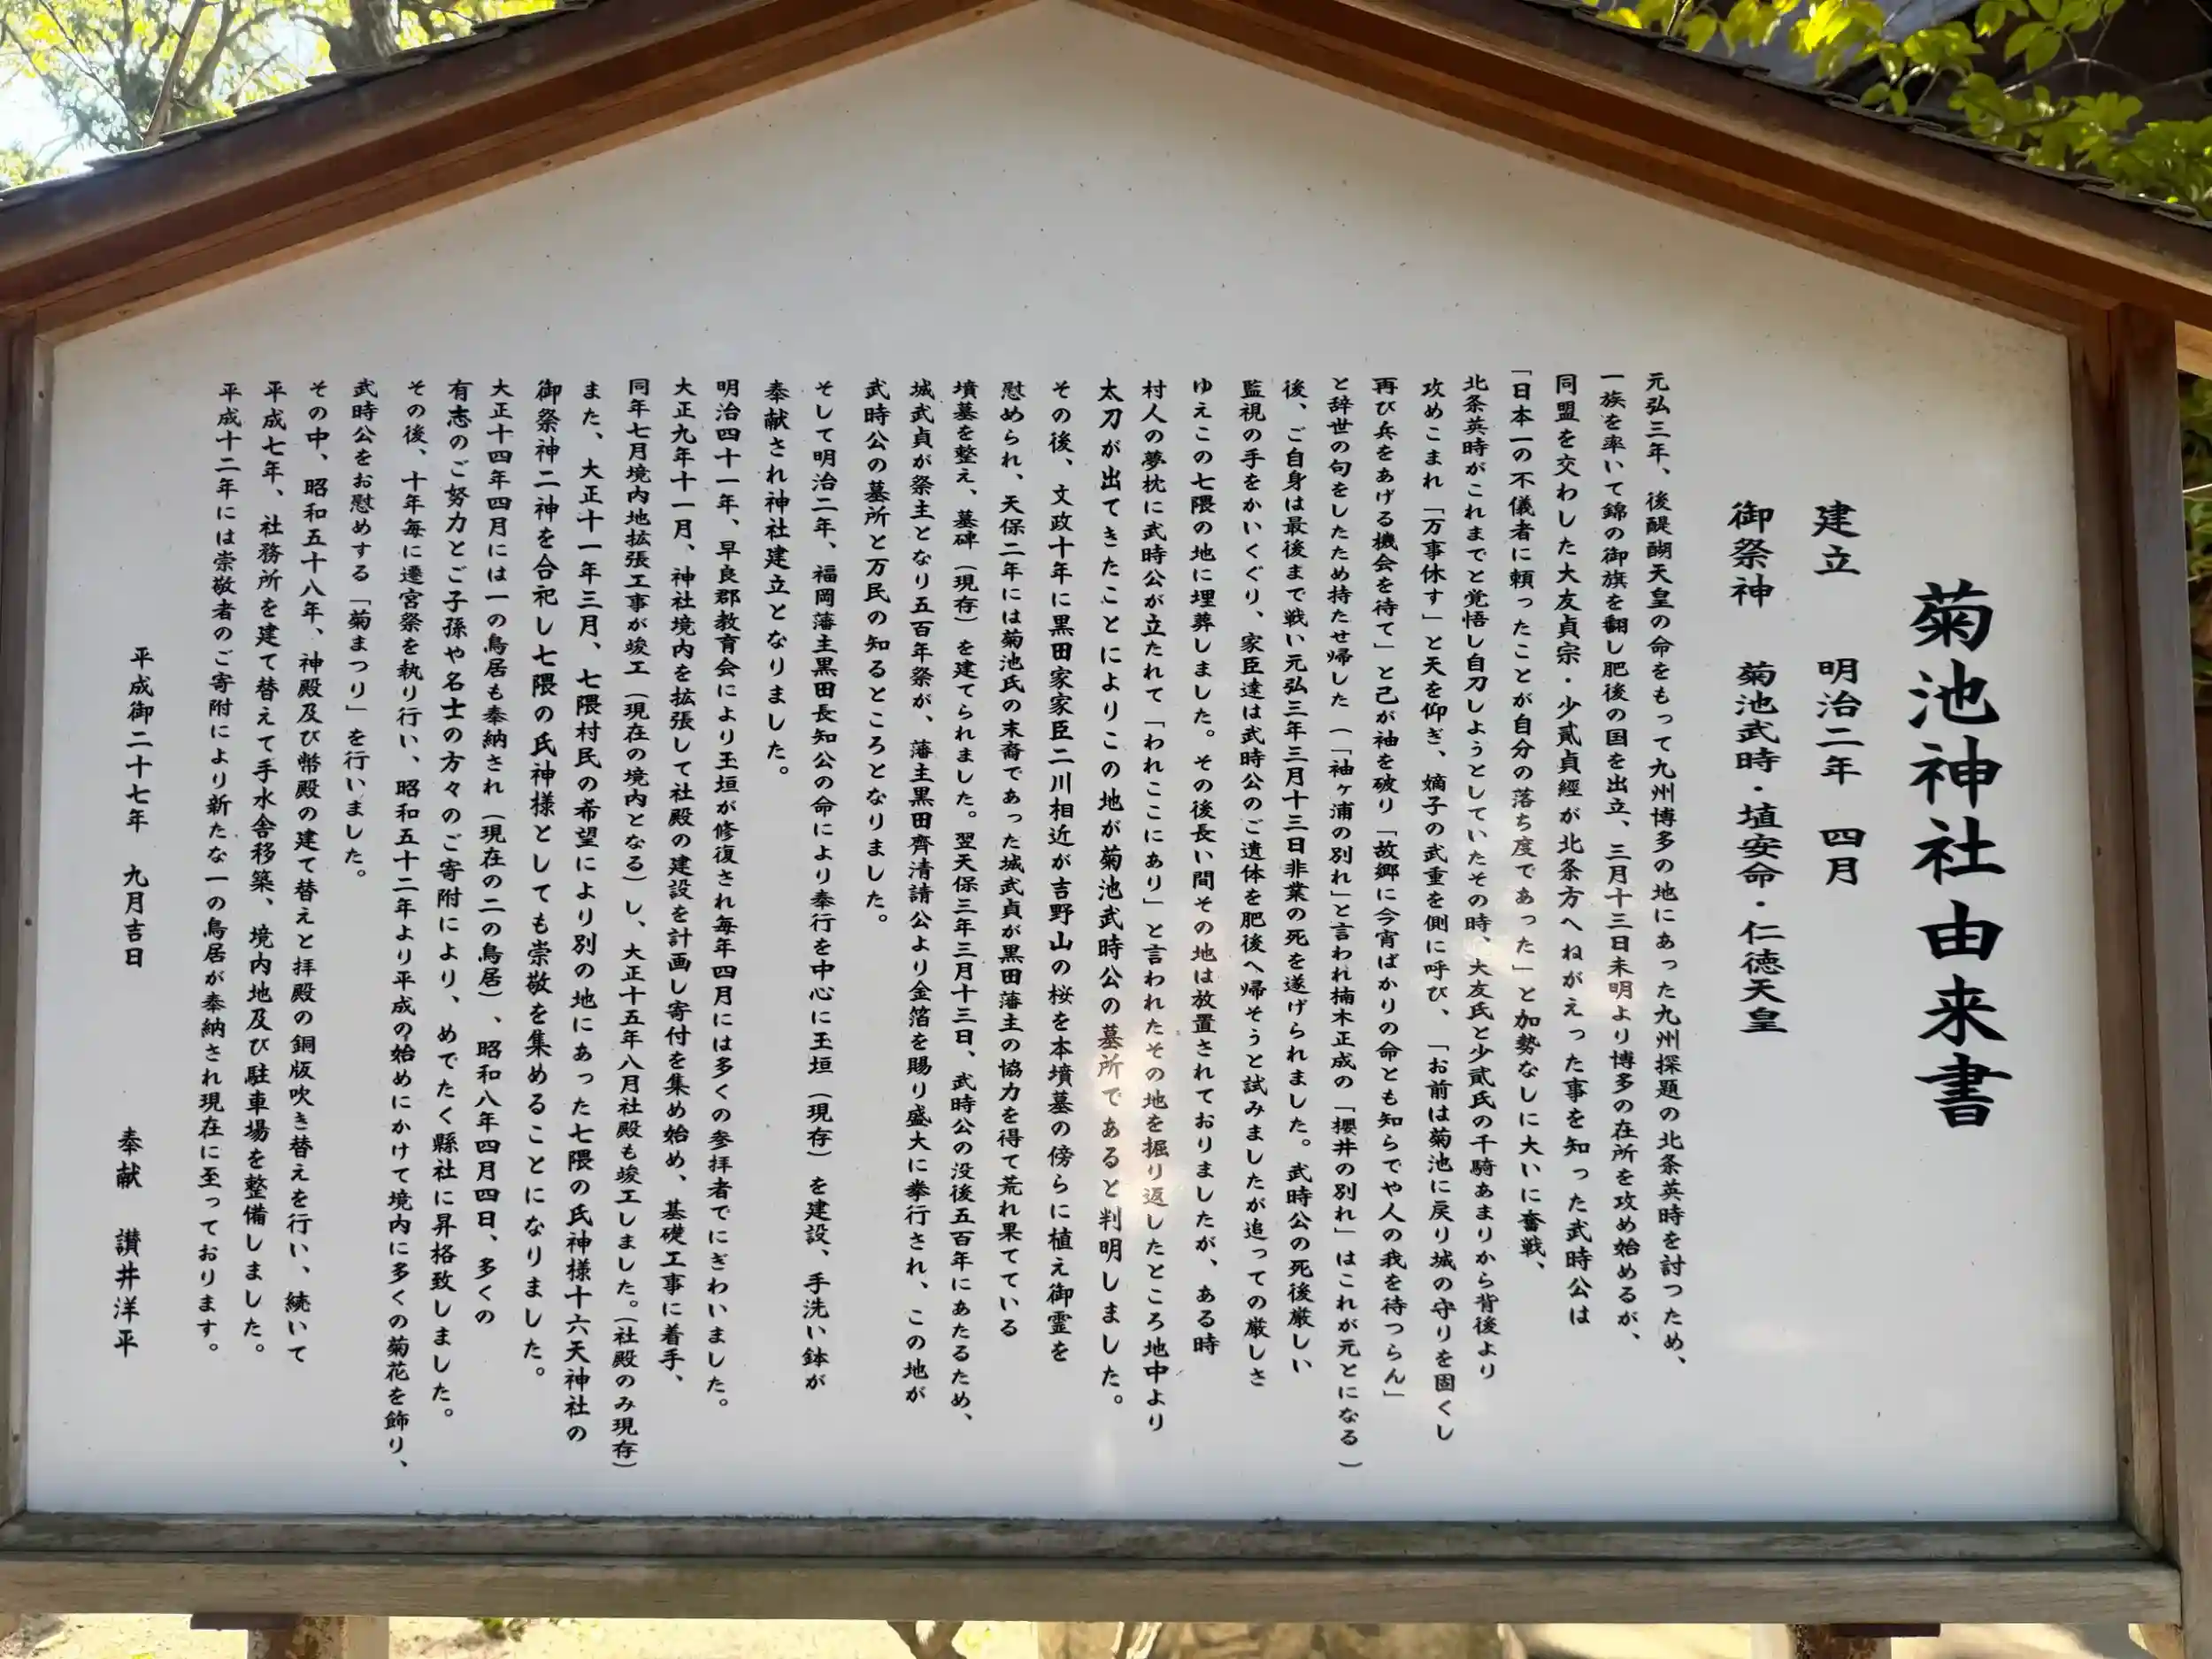 菊池神社由来書
建立　明治二年　四月
御祭神　菊池武時・埴安命・仁徳天皇
元弘三年、後醍醐天皇の命をもって九州博多の地にあった九州探題の北条英時を討つため、
一族を率いて錦の御旗を翻し肥後の国を出立、三月十三日未明より博多の在所を攻め始めるが、
同盟を交わした大友貞宗・少貳貞經が北条方へねがえった事を知った武時公は
「日本一の不儀者に頼ったことが自分の落ち度であった」と加勢なしに大いに奮戦、
北条英時がこれまでと覚悟し自刀しようとしていたその時、大友氏と少貳氏の千騎あまりから背後より
攻めこまれ「万事休す」と天を仰ぎ、嫡子の武重を側に呼び、「お前は菊池に戻り城の守りを固くし
再び兵をあげる機会を待て」と己が袖を破り「故郷に今宵ばかりの命とも知らでや人の我を待つらん」
と辞世の句をしたため持たせ帰した（「袖ヶ浦の別れ」と言われ楠木正成の「櫻井の別れ」はこれが元とになる）
後、ご自身は最後まで戦い元弘三年三月十三日非業の死を遂げられました。武時公の死後厳しい
監視の手をかいくぐり、家臣達は武時公のご遺体を肥後へ帰そうと試みましたが追っての厳しさ
ゆえこの七隈の地に埋葬しました。その後長い間その地は放置されておりましたが、ある時
村人の夢枕に武時公が立たれて「われここにあり」と言われたその地を掘り返したところ地中より
太刀が出てきたことによりこの地が菊池武時公の墓所であると判明しました。
その後、文政十年に黒田家家臣二川相近が吉野山の桜を本墳墓の傍らに植え御霊を
慰められ、天保二年には菊池氏の末裔であった城武貞が黒田藩主の協力を得て荒れ果てている
墳墓を整え、墓碑（現存）を建てられました。翌天保三年三月十三日、武時公の没後五百年にあたるため、
城武貞が祭主となり五百年祭が、藩主黒田齊清請公より金箔を賜り盛大に挙行され、この地が
武時公の墓所と万民の知るところとなりました。
そして明治二年、福岡藩主黒田長知公の命により奉行を中心に玉垣（現存）を建設、手洗い鉢が
奉献され神社建立となりました。
明治四十一年、早良郡教育会により玉垣が修復され毎年四月には多くの参拝者でにぎわいました。
大正九年十一月、神社境内を拡張して社殿の建設を計画し寄付を集め始め、基礎工事に着手、
同年七月境内地拡張工事が竣工（現在の境内となる）し、大正十五年八月社殿も竣工しました。（社殿のみ現存）
また、大正十一年三月、七隈村民の希望により別の地にあった七隈の氏神様十六天神社の
御祭神二神を合祀し七隈の氏神様としても崇敬を集めることになりました。
大正十四年四月には一の鳥居も奉納され（現在の二の鳥居）、昭和八年四月四日、多くの
有志のご努力とご子孫や名士の方々のご寄附により、めでたく縣社に昇格致しました。
その後、十年毎に遷宮祭を執り行い、昭和五十二年より平成の始めにかけて境内に多くの菊花を飾り、
武時公をお慰めする「菊まつり」を行いました。
その中、昭和五十八年、神殿及び幣殿の建て替えと拝殿の銅版吹き替えを行い、続いて
平成七年、社務所を建て替えて手水舎移築、境内地及び駐車場を整備しました。
平成十二年には崇敬者のご寄附により新たな一の鳥居が奉納され現在に至っております。
平成御二十七年　九月吉日　奉献　讃井洋平